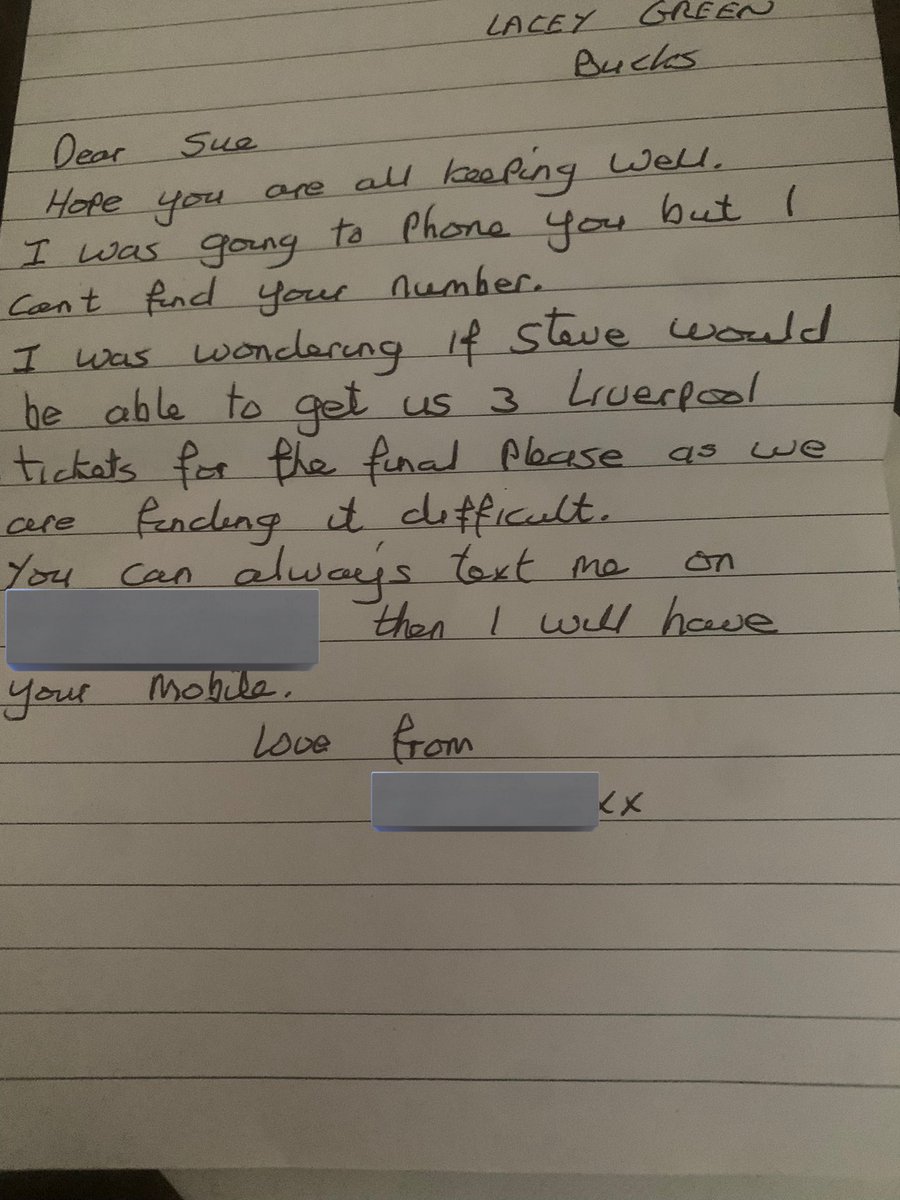 LACEY GREEN
Bucks
Dear Sue
Hope you are all keeping well.
I was going to Phone you but I
can't find your number.
I was wondering if Steve would
be able to get us 3 Liverpool
tickets for the final Please as we
are finding it difficult.
You can always text me on
then I will have
your Mobile.
Love from
xx